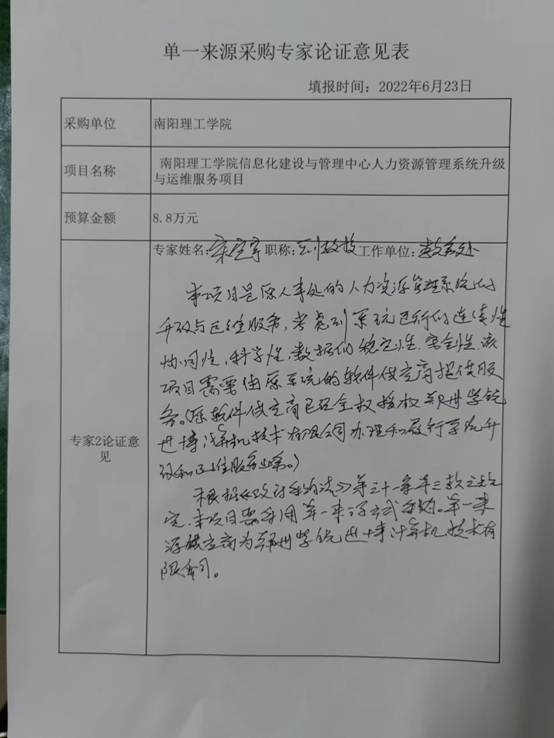 单一来源采购专家论证意见表
填报时间：2022年6月23日
采购单位
南阳理工学院
项目名称
南阳理工学院信息化建设与管理中心人力资源管理系统升级
与运维服务项目
预算金额
8.8万元
专家2论证意
见
专家姓名：职称：副教授 工作单位：教务处
本项目是原人事处的人力资源管理系统的
升级与运维服务，考虑到系统运行的连续性
协同性，科学性，数据的稳定性、安全性，该
项目需要由原系统的软件供应商提供服
务。（原软件供应商已经全权授权郑州学统
进博计算机技术有限公司办理和履行学院升
级和运维服务业务。）
根据《政府采购法》第三十一条第三款之规
定，本项目需采用单一来源方式采购。单一来
源供应商为郑州学统进博计算机技术有
限公司。